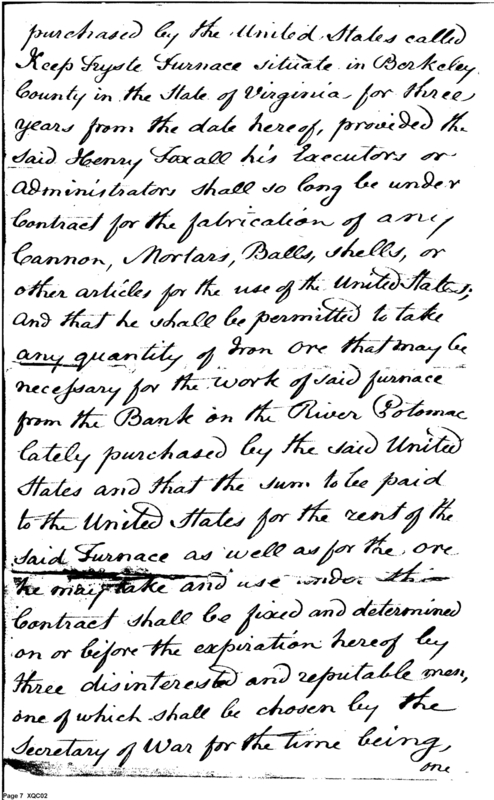 purchased by the United States called
Keep Tryste Furnace situate in Berkeley
County in the State of Virginia, for three
years from the date hereof, provided the
said Henry Foxall his Executors or
Administrators shall so long be under
Contract for the fabrication of any
Cannon, Mortars, Balls, shells, or
other articles for the use of the United States;
And that he shall be permitted to take
any quantity of Iron ore that may be
necessary for the work of said furnace
from the Bank on the River Potomac
lately purchased by the said United
States and that the sum to be paid
to the United States for the rent of the
said Furnace as well as for the ore
he may take and use under this
Contract shall be fixed and determined
on or before the expiration hereof by
three disinterested and reputable men,
one of which shall be chosen by the
Secretary of War for the time being,
one
Page 7 XQC02